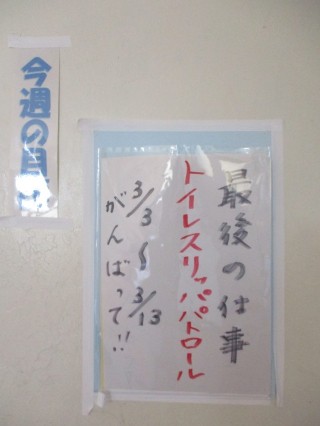 今週の目
最後の仕事
トイレスリッパパトロール
3/3 〜 3/13
がんばって!!